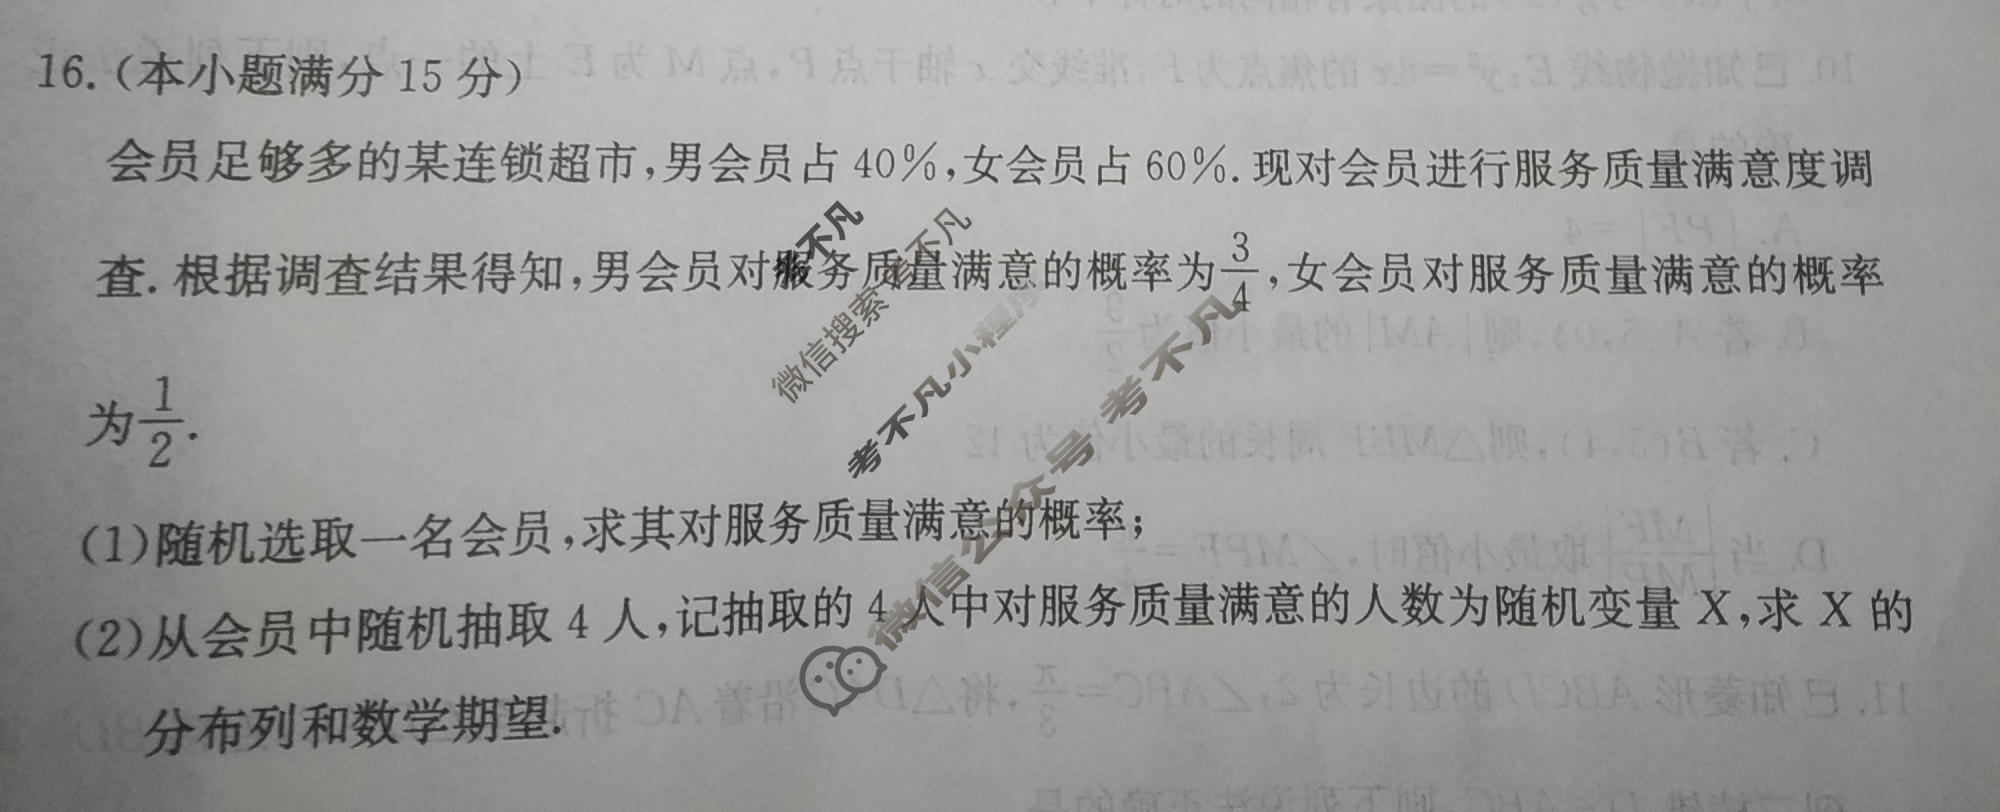 16.(本小题满分 15 分)
会员足够多的某连锁超市,男会员占 40%,女会员占 60%. 现对会员进行服务质量满意度调
查. 根据调查结果得知,男会员对服务质量满意的概率为3/4,女会员对服务质量满意的概率
为1/2.
(1)随机选取一名会员,求其对服务质量满意的概率;
(2)从会员中随机抽取 4 人,记抽取的 4 人中对服务质量满意的人数为随机变量 X,求 X 的
分布列和数学期望.
微信搜索
考不凡小程序
微信公众号 考不凡